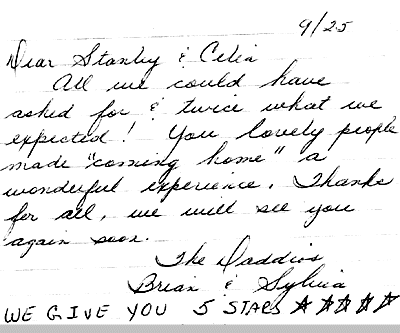 9/25
Dear Stanley & Celia
All we could have
asked for & twice what we
expected! You lovely people
made "coming home" a
wonderful experience. Thanks
for all, we will see you
again soon.
The Daddios
Brian & Sylvia
WE GIVE YOU 5 STARS ★★★★★